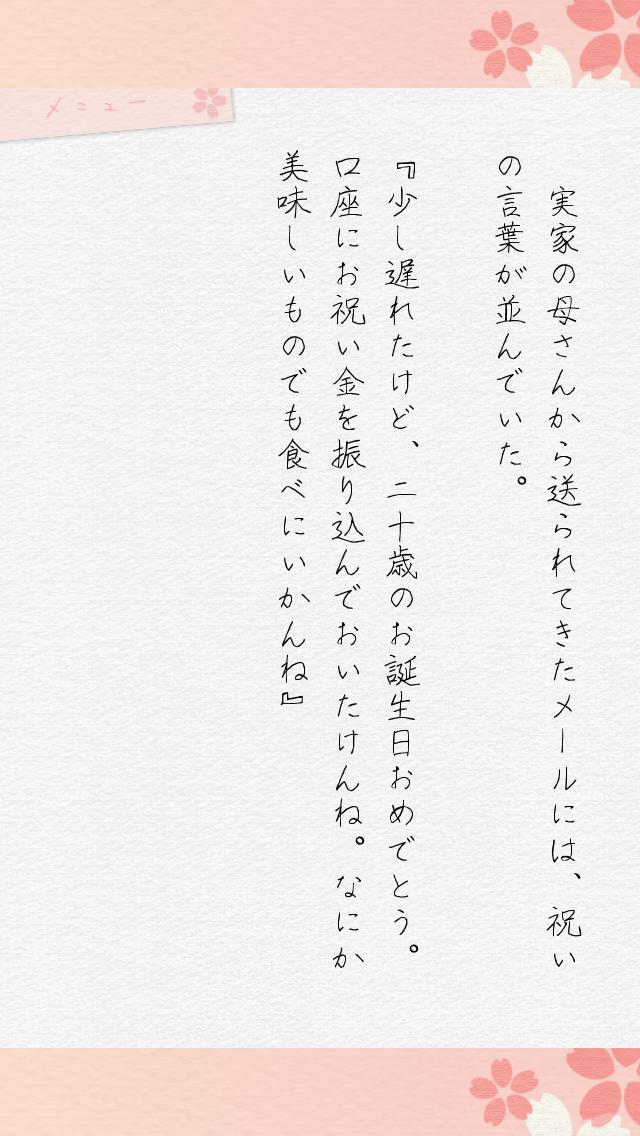 メニュー
　実家の母さんから送られてきたメールには、祝い
の言葉が並んでいた。
『少し遅れたけど、二十歳のお誕生日おめでとう。
口座にお祝い金を振り込んでおいたけんね。なにか
美味しいものでも食べにいかんね』